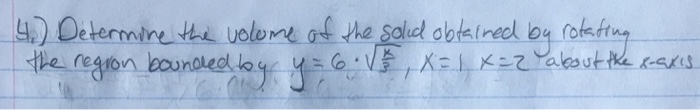 4.) Determine the volume of the solid obtained by rotating
the region bounded by y = 6 · √(x/3), x=1, x=2 about the x-axis